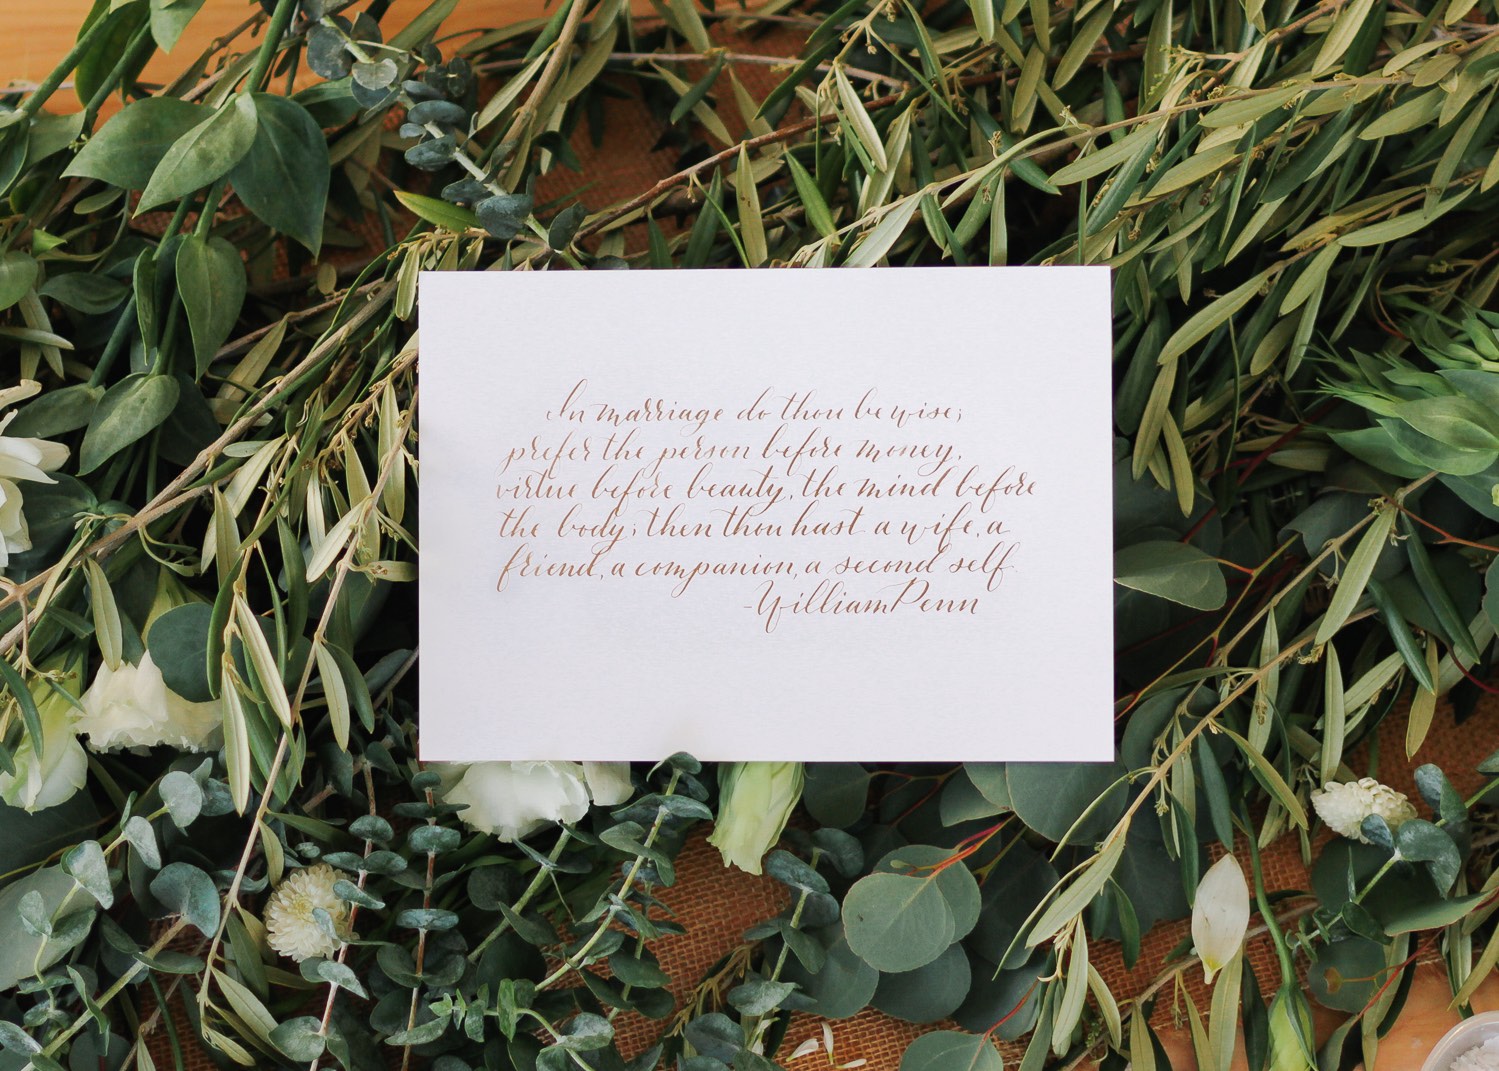 In marriage do thou be wise;
prefer the person before money,
virtue before beauty, the mind before
the body; then thou hast a wife, a
friend, a companion, a second self.
-William Penn